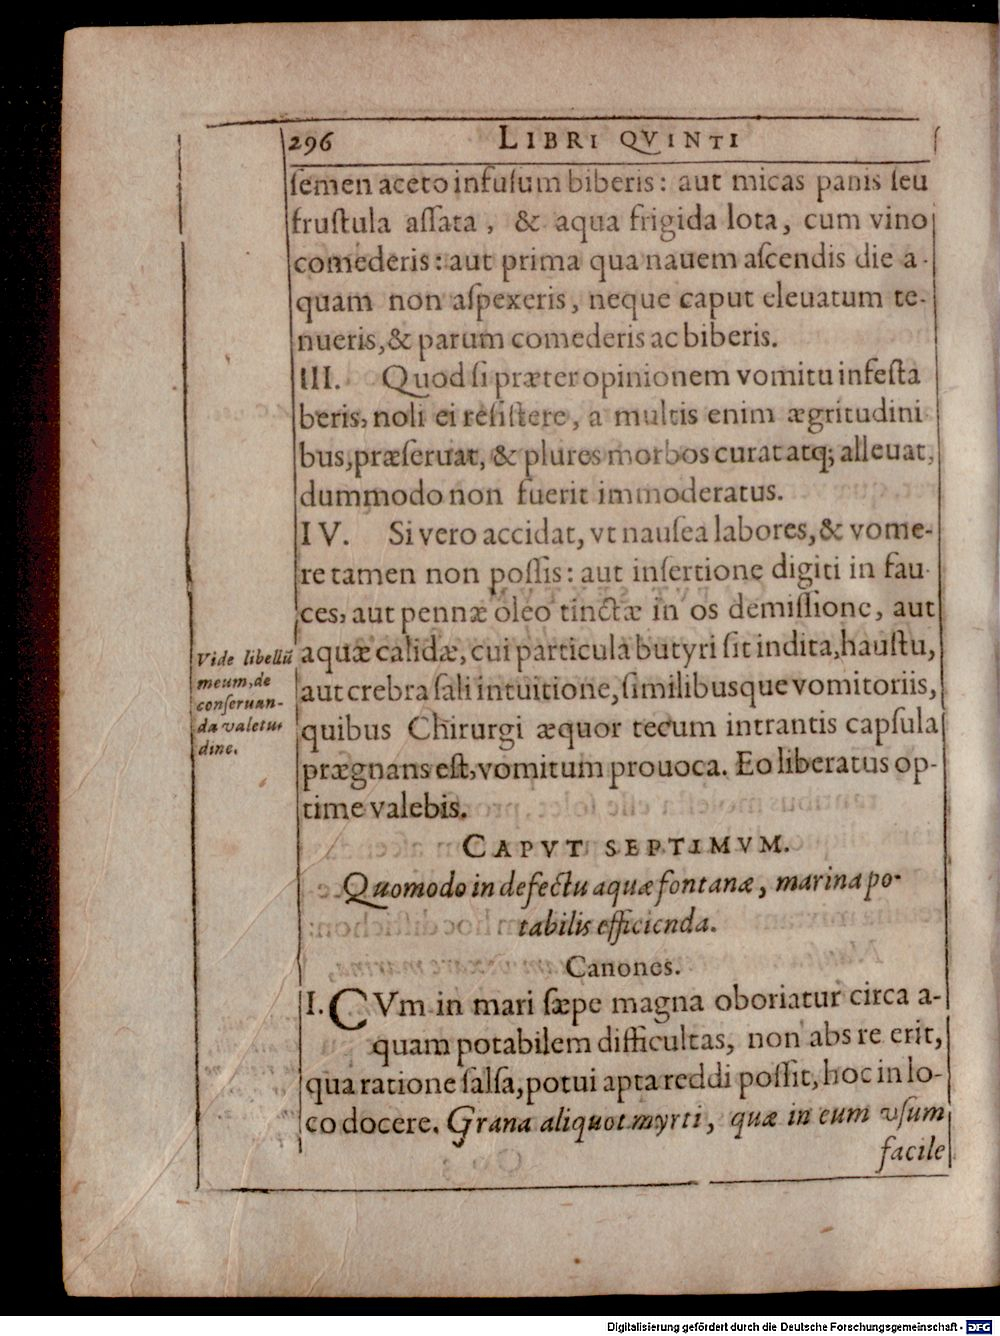 296 LIBRI QVINTI
ſemen aceto infuſum biberis: aut micas panis ſeu
fruſtula aſſata, & aqua frigida lota, cum vino
comederis: aut prima qua nauem aſcendis die a-
quam non aſpexeris, neque caput eleuatum te-
nueris, & parum comederis ac biberis.
III. Quod ſi præter opinionem vomitu infeſta
beris, noli ei reſiſtere, a multis enim ægritudini
bus, præſeruat, & plures morbos curat atq; alleuat,
dummodo non fuerit immoderatus.
IV. Si vero accidat, vt nauſea labores, & vome-
re tamen non poſſis: aut inſertione digiti in fau-
ces, aut pennæ oleo tinctæ in os demiſſione, aut
aquæ calidæ, cui particula butyri ſit indita, hauſtu,
aut crebra ſali intuitione, ſimilibusque vomitoriis,
quibus Chirurgi æquor tecum intrantis capſula
prægnans eſt, vomitum prouoca. Eo liberatus op-
time valebis.
Vide libellũ
meum, de
conſeruan-
da valetu-
dine.
CAPVT SEPTIMVM.
Quomodo in defectu aquæ fontanæ, marina po-
tabilis efficienda.
Canones.
I. CVm in mari ſæpe magna oboriatur circa a-
quam potabilem difficultas, non abs re erit,
qua ratione ſalſa, potui apta reddi poſſit, hoc in lo-
co docere. Grana aliquot myrti, quæ in eum vſum
facile
Digitalisierung gefördert durch die Deutsche Forschungsgemeinschaft - DFG